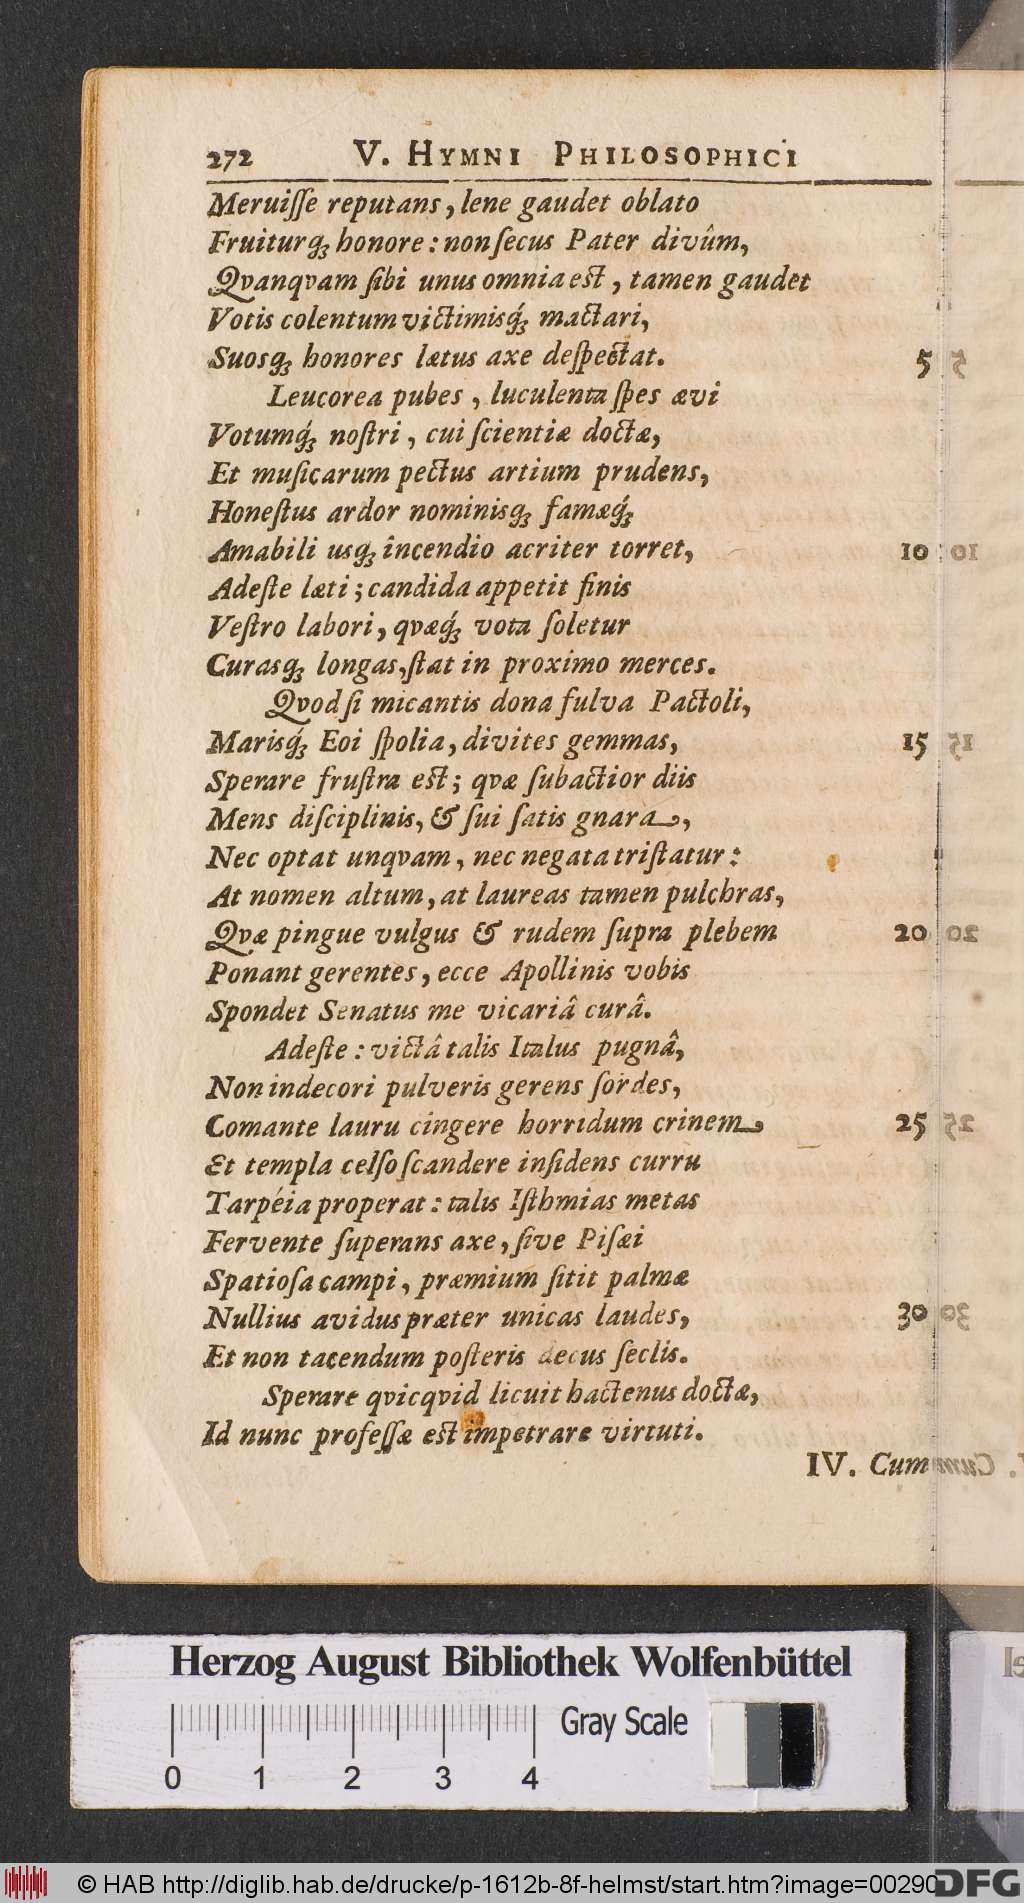 272 V. HYMNI PHILOSOPHICI
Meruiſſe reputans, lene gaudet oblato
Fruiturq́; honore: non ſecus Pater divûm,
Qvanqvam ſibi unus omnia eſt, tamen gaudet
Votis colentum victimisq́; mactari,
Suosq; honores lætus axe deſpectat. 5
Leucorea pubes, luculenta ſpes ævi
Votumq́; noſtri, cui ſcientiæ doctæ,
Et muſicarum pectus artium prudens,
Honeſtus ardor nominisq; famæq́;
Amabili usq; incendio acriter torret, 10
Adeſte læti; candida appetit finis
Veſtro labori, qvæq́; vota ſoletur
Curasq; longas, ſtat in proximo merces.
Qvod ſi micantis dona fulva Pactoli,
Marisq́; Eoi ſpolia, divites gemmas, 15
Sperare fruſtra eſt; qvæ ſubactior diis
Mens diſciplinis, & ſui ſatis gnara,
Nec optat unqvam, nec negata triſtatur:
At nomen altum, at laureas tamen pulchras,
Qvæ pingue vulgus & rudem ſupra plebem 20
Ponant gerentes, ecce Apollinis vobis
Spondet Senatus me vicariâ curâ.
Adeſte: victâ talis Italus pugnâ,
Non indecori pulveris gerens ſordes,
Comante lauru cingere horridum crinem 25
Et templa celſo ſcandere inſidens curru
Tarpéia properat: talis Iſthmias metas
Fervente ſuperans axe, ſive Piſæi
Spatioſa campi, præmium ſitit palmæ
Nullius avidus præter unicas laudes, 30
Et non tacendum poſteris decus ſeclis.
Sperare qvicqvid licuit hactenus doctæ,
Id nunc profeſſæ eſt impetrare virtuti.
IV. Cum
Herzog August Bibliothek Wolfenbüttel
Gray Scale
0 1 2 3 4
© HAB http://diglib.hab.de/drucke/p-1612b-8f-helmst/start.htm?image=00290
DFG